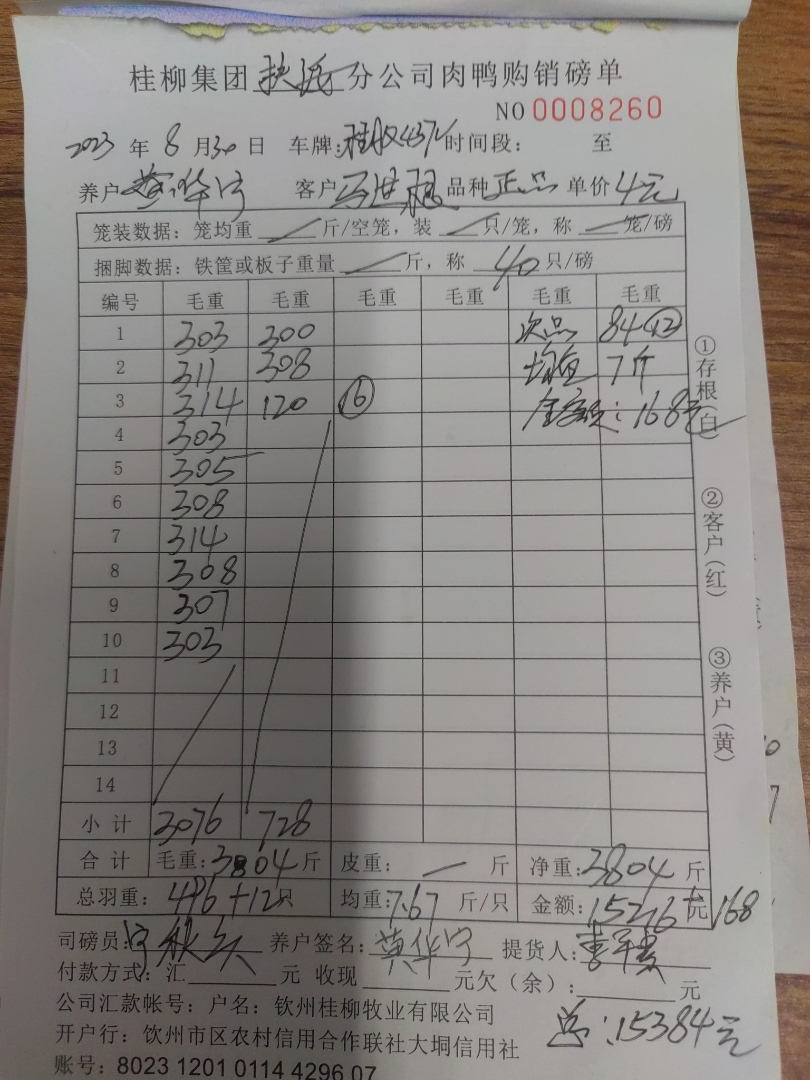 桂柳集团 分公司肉鸭购销磅单
NO 0008260
2023 年 8 月 30 日 车牌: 时间段: 至
养户 客户 品种 正品 单价 4元
笼装数据: 笼均重 斤/空笼, 装 只/笼, 称 笼/磅
捆脚数据: 铁筐或板子重量 斤, 称 40 只/磅
编号 毛重 毛重 毛重 毛重 毛重 毛重
1 303 300 次品 84 ⑫
2 311 308 均重 7斤
3 314 120 ⑯ 金额: 168元
4 303
5 305
6 308
7 314
8 308
9 307
10 303
11
12
13
14
小计 3076 728
合计 毛重: 3804 斤 皮重: 斤 净重: 3804 斤
总羽重: 496+12 只 均重: 7.67 斤/只 金额: 15216 元 168
司磅员: 养户签名: 黄华宁 提货人:
付款方式: 汇 元 收现 元欠(余): 元
公司汇款帐号: 户名: 钦州桂柳牧业有限公司
开户行: 钦州市区农村信用合作联社大垌信用社
总: 15384元
账号: 8023 1201 0114 4296 07
①存根(白)
②客户(红)
③养户(黄)